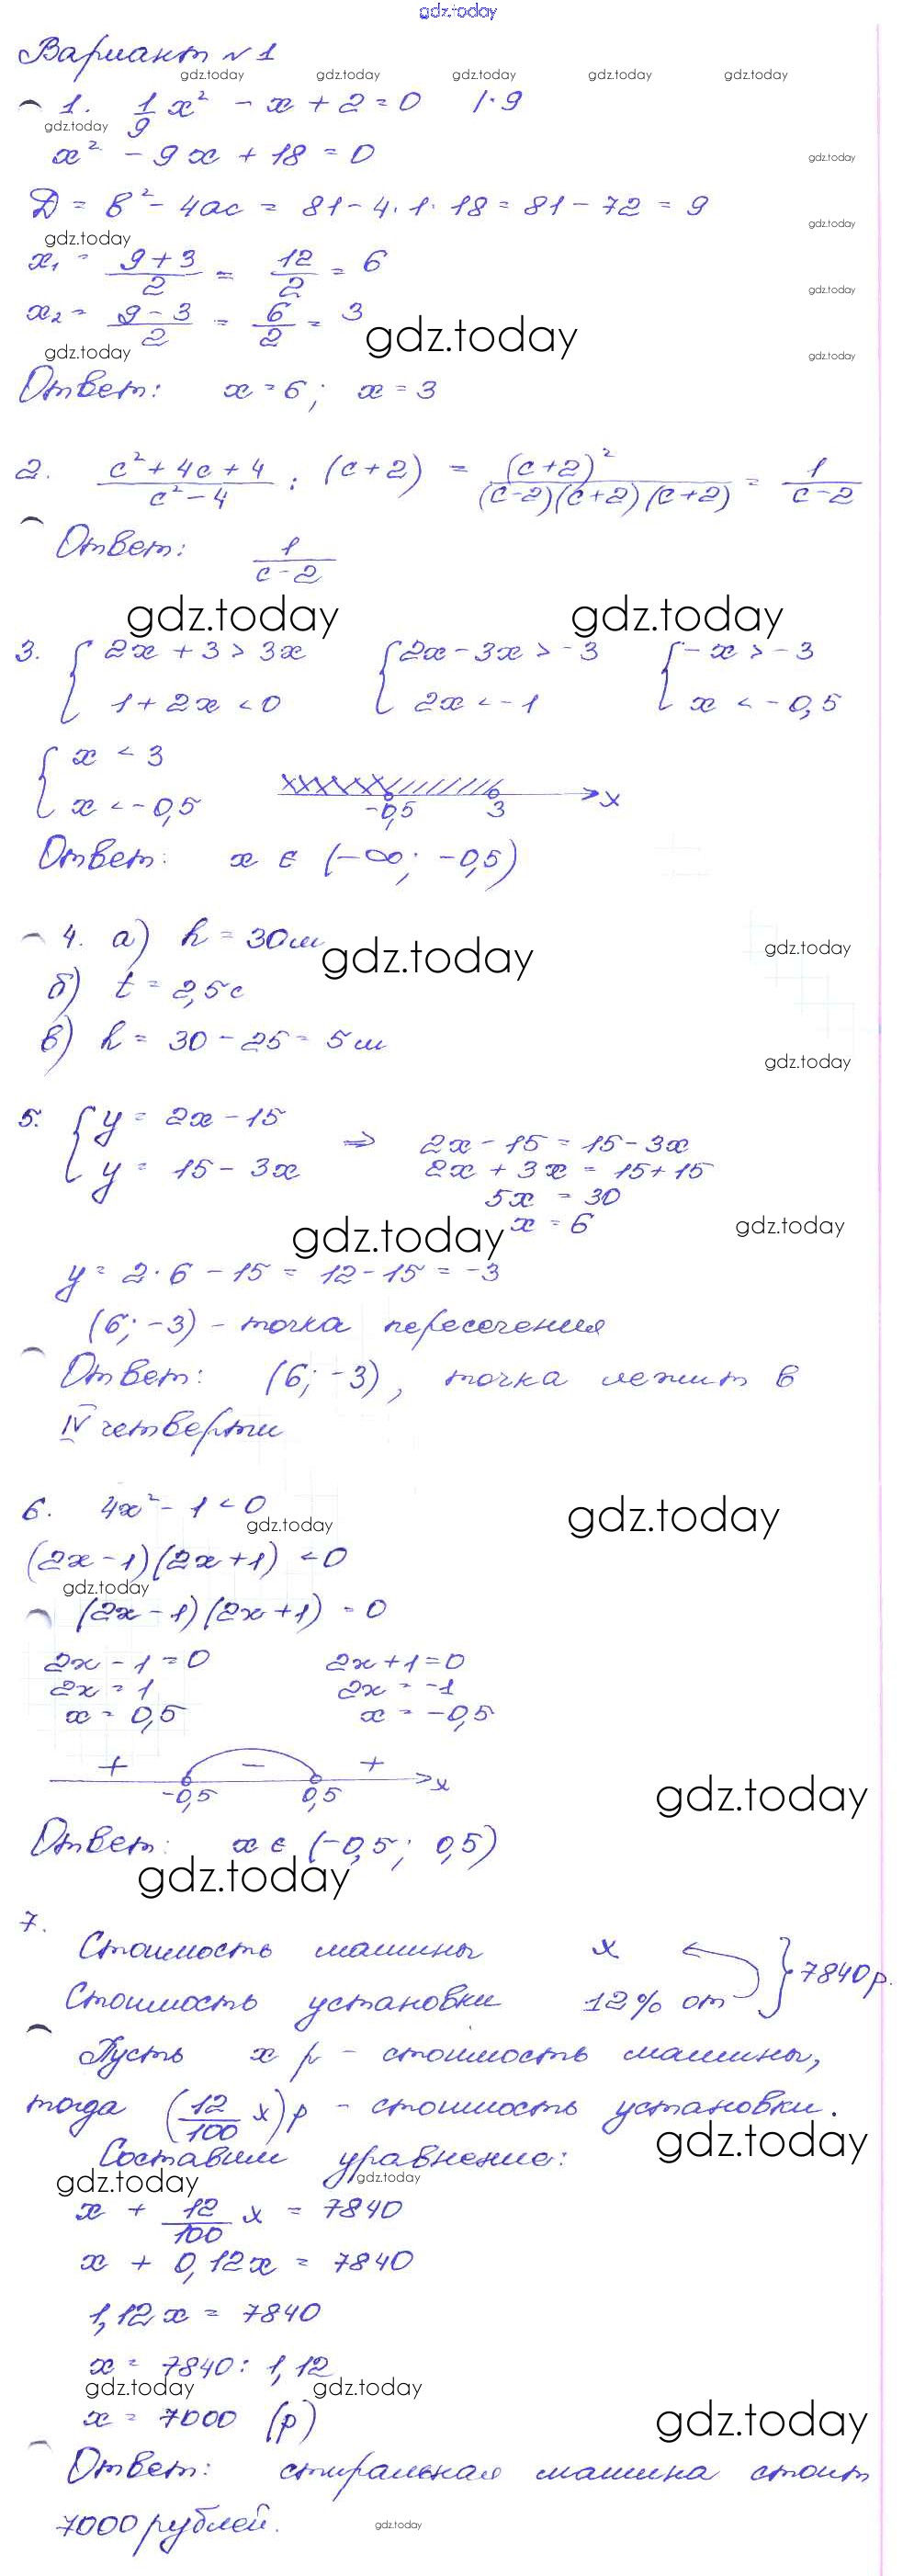 gdz.today
Вариант №1
gdz.today gdz.today gdz.today gdz.today gdz.today
1. 1/9 x² - x + 2 = 0 |·9
gdz.today
x² - 9x + 18 = 0
gdz.today
D = b² - 4ac = 81 - 4·1·18 = 81 - 72 = 9
gdz.today
gdz.today
x₁ = (9+3)/2 = 12/2 = 6
gdz.today
x₂ = (9-3)/2 = 6/2 = 3
gdz.today
gdz.today gdz.today
Ответ: x = 6; x = 3
2. (c² + 4c + 4)/(c² - 4) : (c+2) = (c+2)²/((c-2)(c+2)(c+2)) = 1/(c-2)
Ответ: 1/(c-2)
gdz.today gdz.today
3. { 2x + 3 > 3x { 2x - 3x > -3 { -x > -3
1 + 2x < 0 2x < -1 x < -0,5
{ x < 3
x < -0,5
-0,5 3 x
Ответ: x ∈ (-∞; -0,5)
4. а) h = 30м
gdz.today gdz.today
б) t = 2,5с
в) h = 30 - 25 = 5м
gdz.today
5. { y = 2x - 15 ⇒ 2x - 15 = 15 - 3x
y = 15 - 3x 2x + 3x = 15 + 15
5x = 30
x = 6
gdz.today gdz.today
y = 2·6 - 15 = 12 - 15 = -3
(6; -3) - точка пересечения
Ответ: (6; -3), точка лежит в
IV четверти
6. 4x² - 1 < 0
gdz.today gdz.today
(2x-1)(2x+1) < 0
gdz.today
(2x-1)(2x+1) = 0
2x - 1 = 0 2x + 1 = 0
2x = 1 2x = -1
x = 0,5 x = -0,5
+ - +
-0,5 0,5 x
gdz.today
Ответ: x ∈ (-0,5; 0,5)
gdz.today
7.
Стоимость машины x } 7840р.
Стоимость установки 12% от
Пусть x р - стоимость машины,
тогда (12/100 x)р - стоимость установки.
gdz.today
Составим уравнение:
gdz.today gdz.today
x + 12/100 x = 7840
x + 0,12x = 7840
1,12x = 7840
x = 7840 : 1,12
gdz.today gdz.today
x = 7000 (р)
gdz.today
Ответ: стиральная машина стоит
7000 рублей.
gdz.today